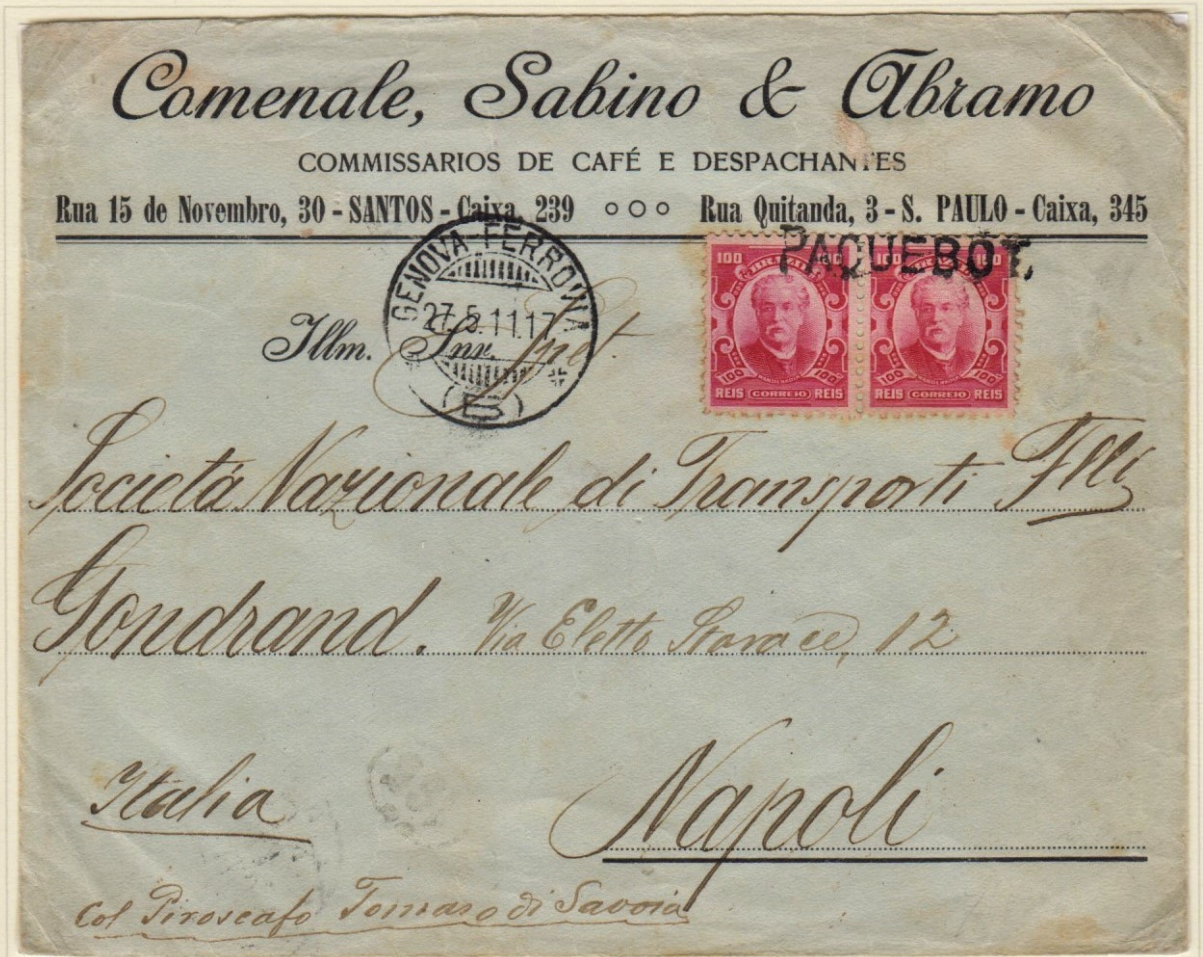 Comenale, Sabino & Abramo
COMMISSARIOS DE CAFÉ E DESPACHANTES
Rua 15 de Novembro, 30 - SANTOS - Caixa, 239 ooo Rua Quitanda, 3 - S. PAULO - Caixa, 345
PAQUEBOT.
GENOVA FERROVIA
27.5.11.17
(B)
100 BRAZIL 100 100 BRAZIL 100
100 100 100 100
REIS CORREIO REIS REIS CORREIO REIS
Illm. Snr.
Società Nazionale di Transporti Flli
Gondrand. Via Eletto Starace, 12
Italia Napoli
Col Piroscafo Tomaso di Savoia